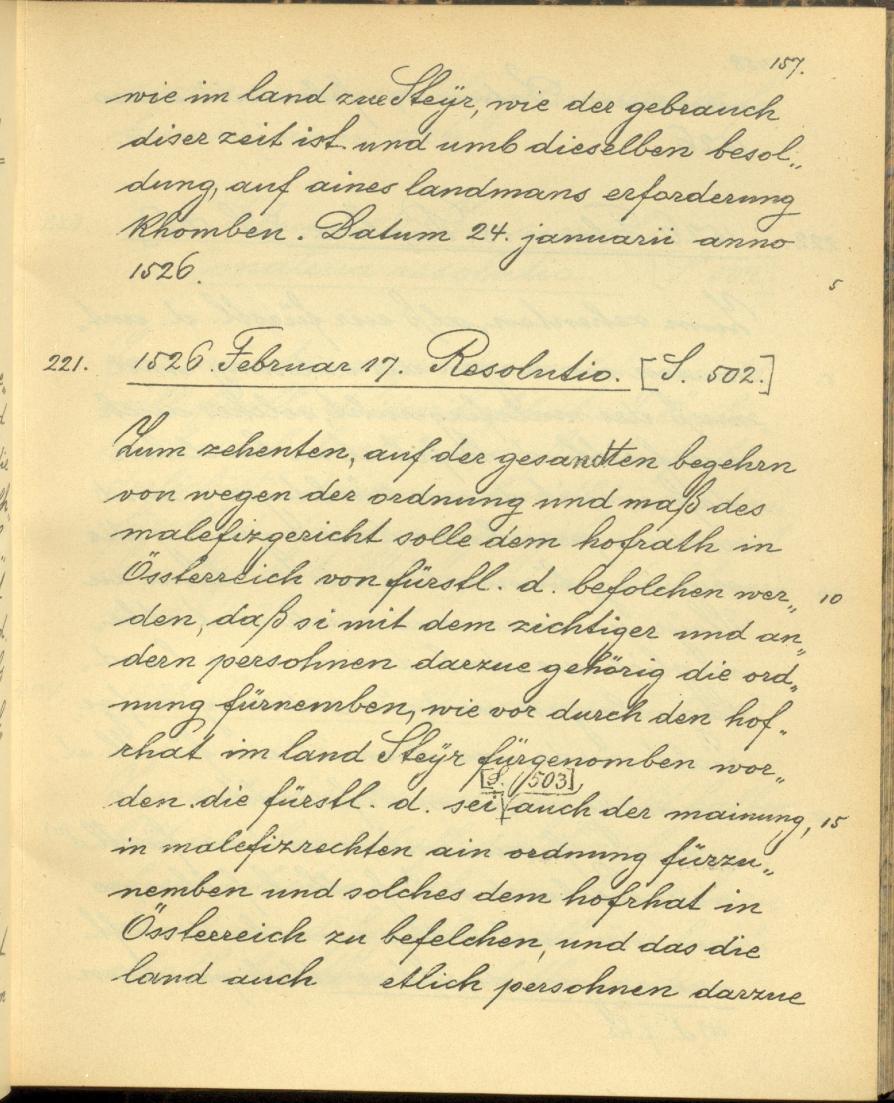 157.
wie im land zue Steÿr, wie der gebrauch
diser zeit ist und umb dieselben besol„
dung, auf aines landmans erforderung
khomben. Datum 24. januarii anno
1526.
5
221. 1526. Februar 17. Resolutio. [S. 502.]
Zum zehenten, auf der gesandten begehrn
von wegen der ordnung und maß des
malefizgericht solle dem hofrath in
Össterreich von fürstl. d. befolchen wer„ 10
den, daß si mit dem zichtiger und an„
dern persohnen darzue gehörig die ord„
nung fürnemben, wie vor durch den hof„
rhat im land Steÿr fürgenomben wor„
[S. 503]
den. die fürstl. d. sei auch der mainung, 15
in malefizrechten ain ordnung fürzu„
nemben und solches dem hofrhat in
Össterreich zu befelchen, und das die
land auch etlich persohnen darzue